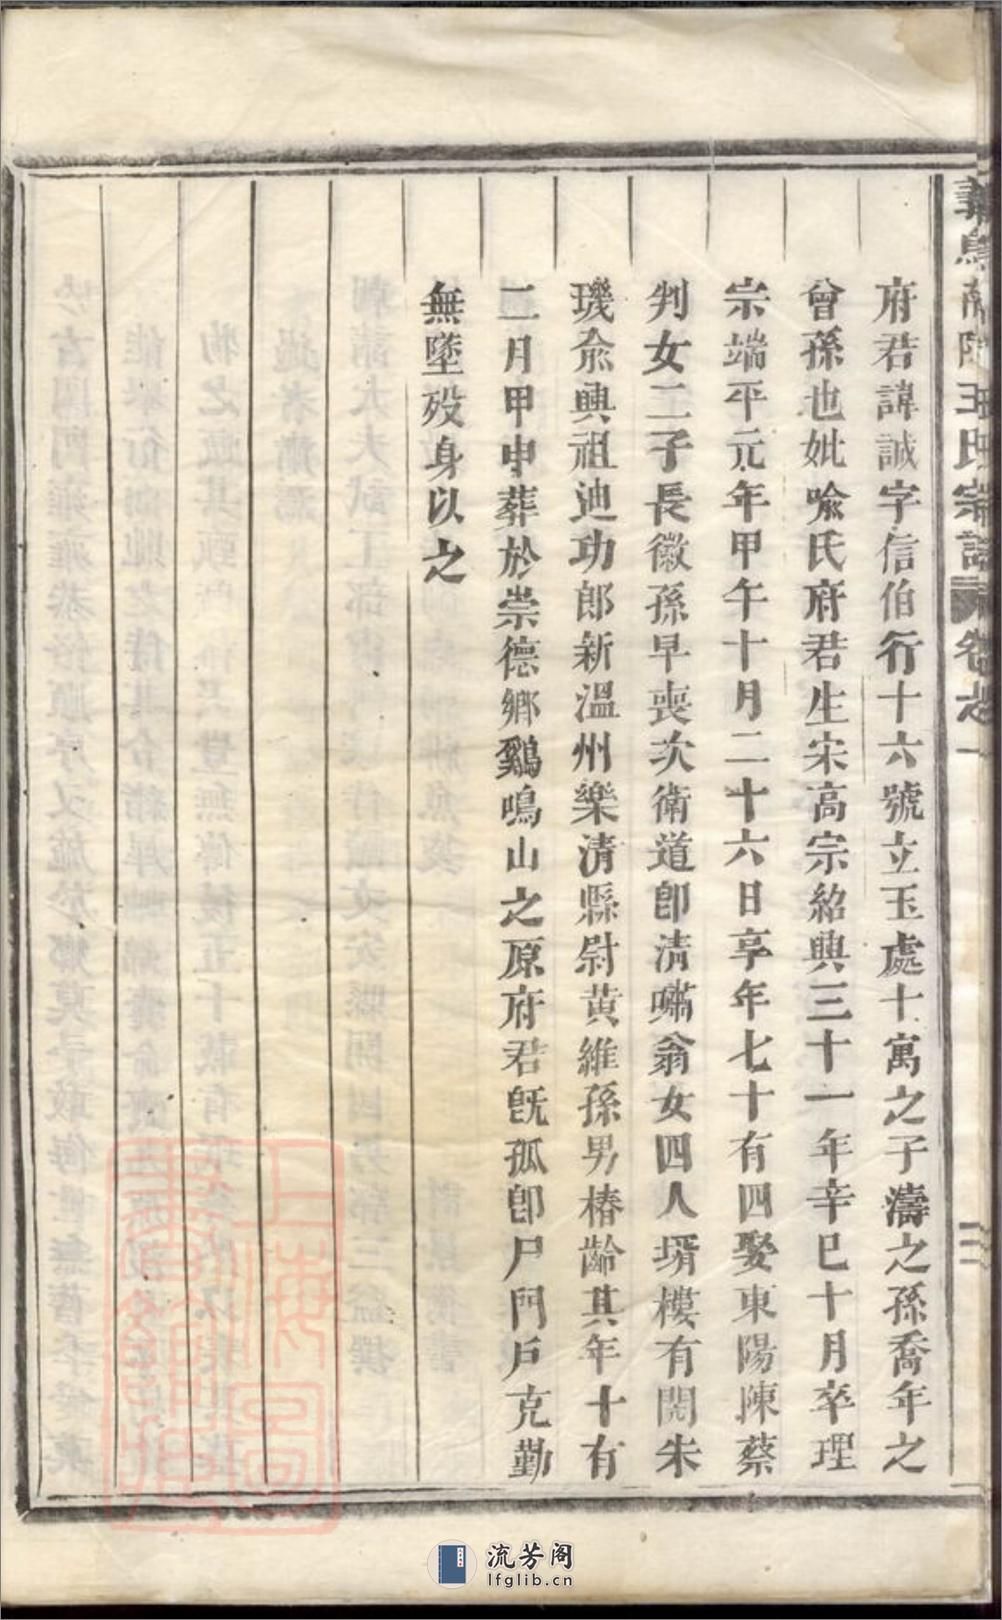 義烏南陂王氏宗譜 卷之一
府君諱誠字信伯行十六號立玉處十寓之子濤之孫喬年之
曾孫也妣喻氏府君生宋高宗紹興三十一年辛巳十月卒理
宗端平元年甲午十月二十六日享年七十有四娶東陽陳蔡
判女二子長徽孫早喪次衛道卽清嘯翁女四人壻樓有閎朱
璣兪興祖迪功郎新溫州樂清縣尉黄維孫男椿齡其年十有
二月甲申葬於崇德鄉鷄鳴山之原府君旣孤卽尸門戶克勤
無墜歿身以之
流芳阁
lfglib.cn